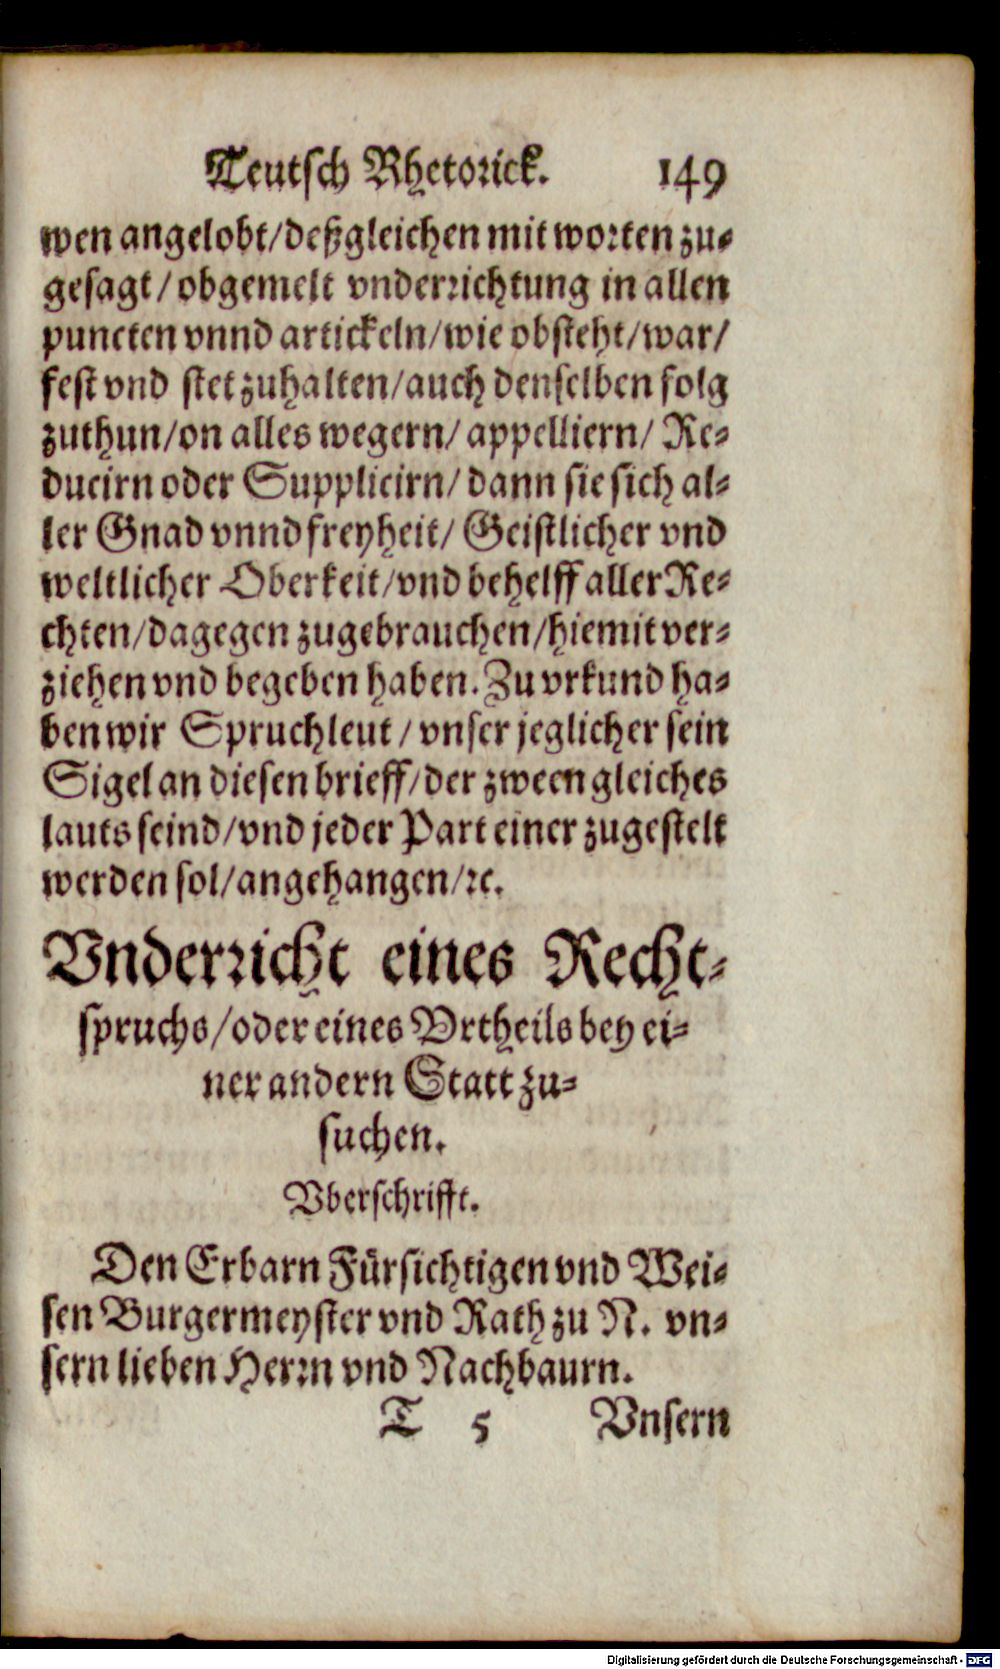 Teutsch Rhetorick. 149
wen angelobt/deßgleichen mit worten zu-
gesagt/obgemelt vnderrichtung in allen
puncten vnnd artickeln/wie obsteht/war/
fest vnd stet zuhalten/auch denselben folg
zuthun/on alles wegern/appelliern/Re-
ducirn oder Supplicirn/dann sie sich al-
ler Gnad vnnd freyheit/Geistlicher vnd
weltlicher Oberkeit/vnd behelff aller Re-
chten/dagegen zugebrauchen/hiemit ver-
ziehen vnd begeben haben. Zu vrkund ha-
ben wir Spruchleut/vnser jeglicher sein
Sigel an diesen brieff/der zween gleiches
lauts seind/vnd jeder Part einer zugestelt
werden sol/angehangen/ꝛc.
Vnderricht eines Recht-
spruchs/oder eines Vrtheils bey ei-
ner andern Statt zu-
suchen.
Vberschrifft.
Den Erbarn Fürsichtigen vnd Wei-
sen Burgermeyster vnd Rath zu N. vn-
sern lieben Herrn vnd Nachbaurn.
T 5 Vnsern
Digitalisierung gefördert durch die Deutsche Forschungsgemeinschaft - DFG